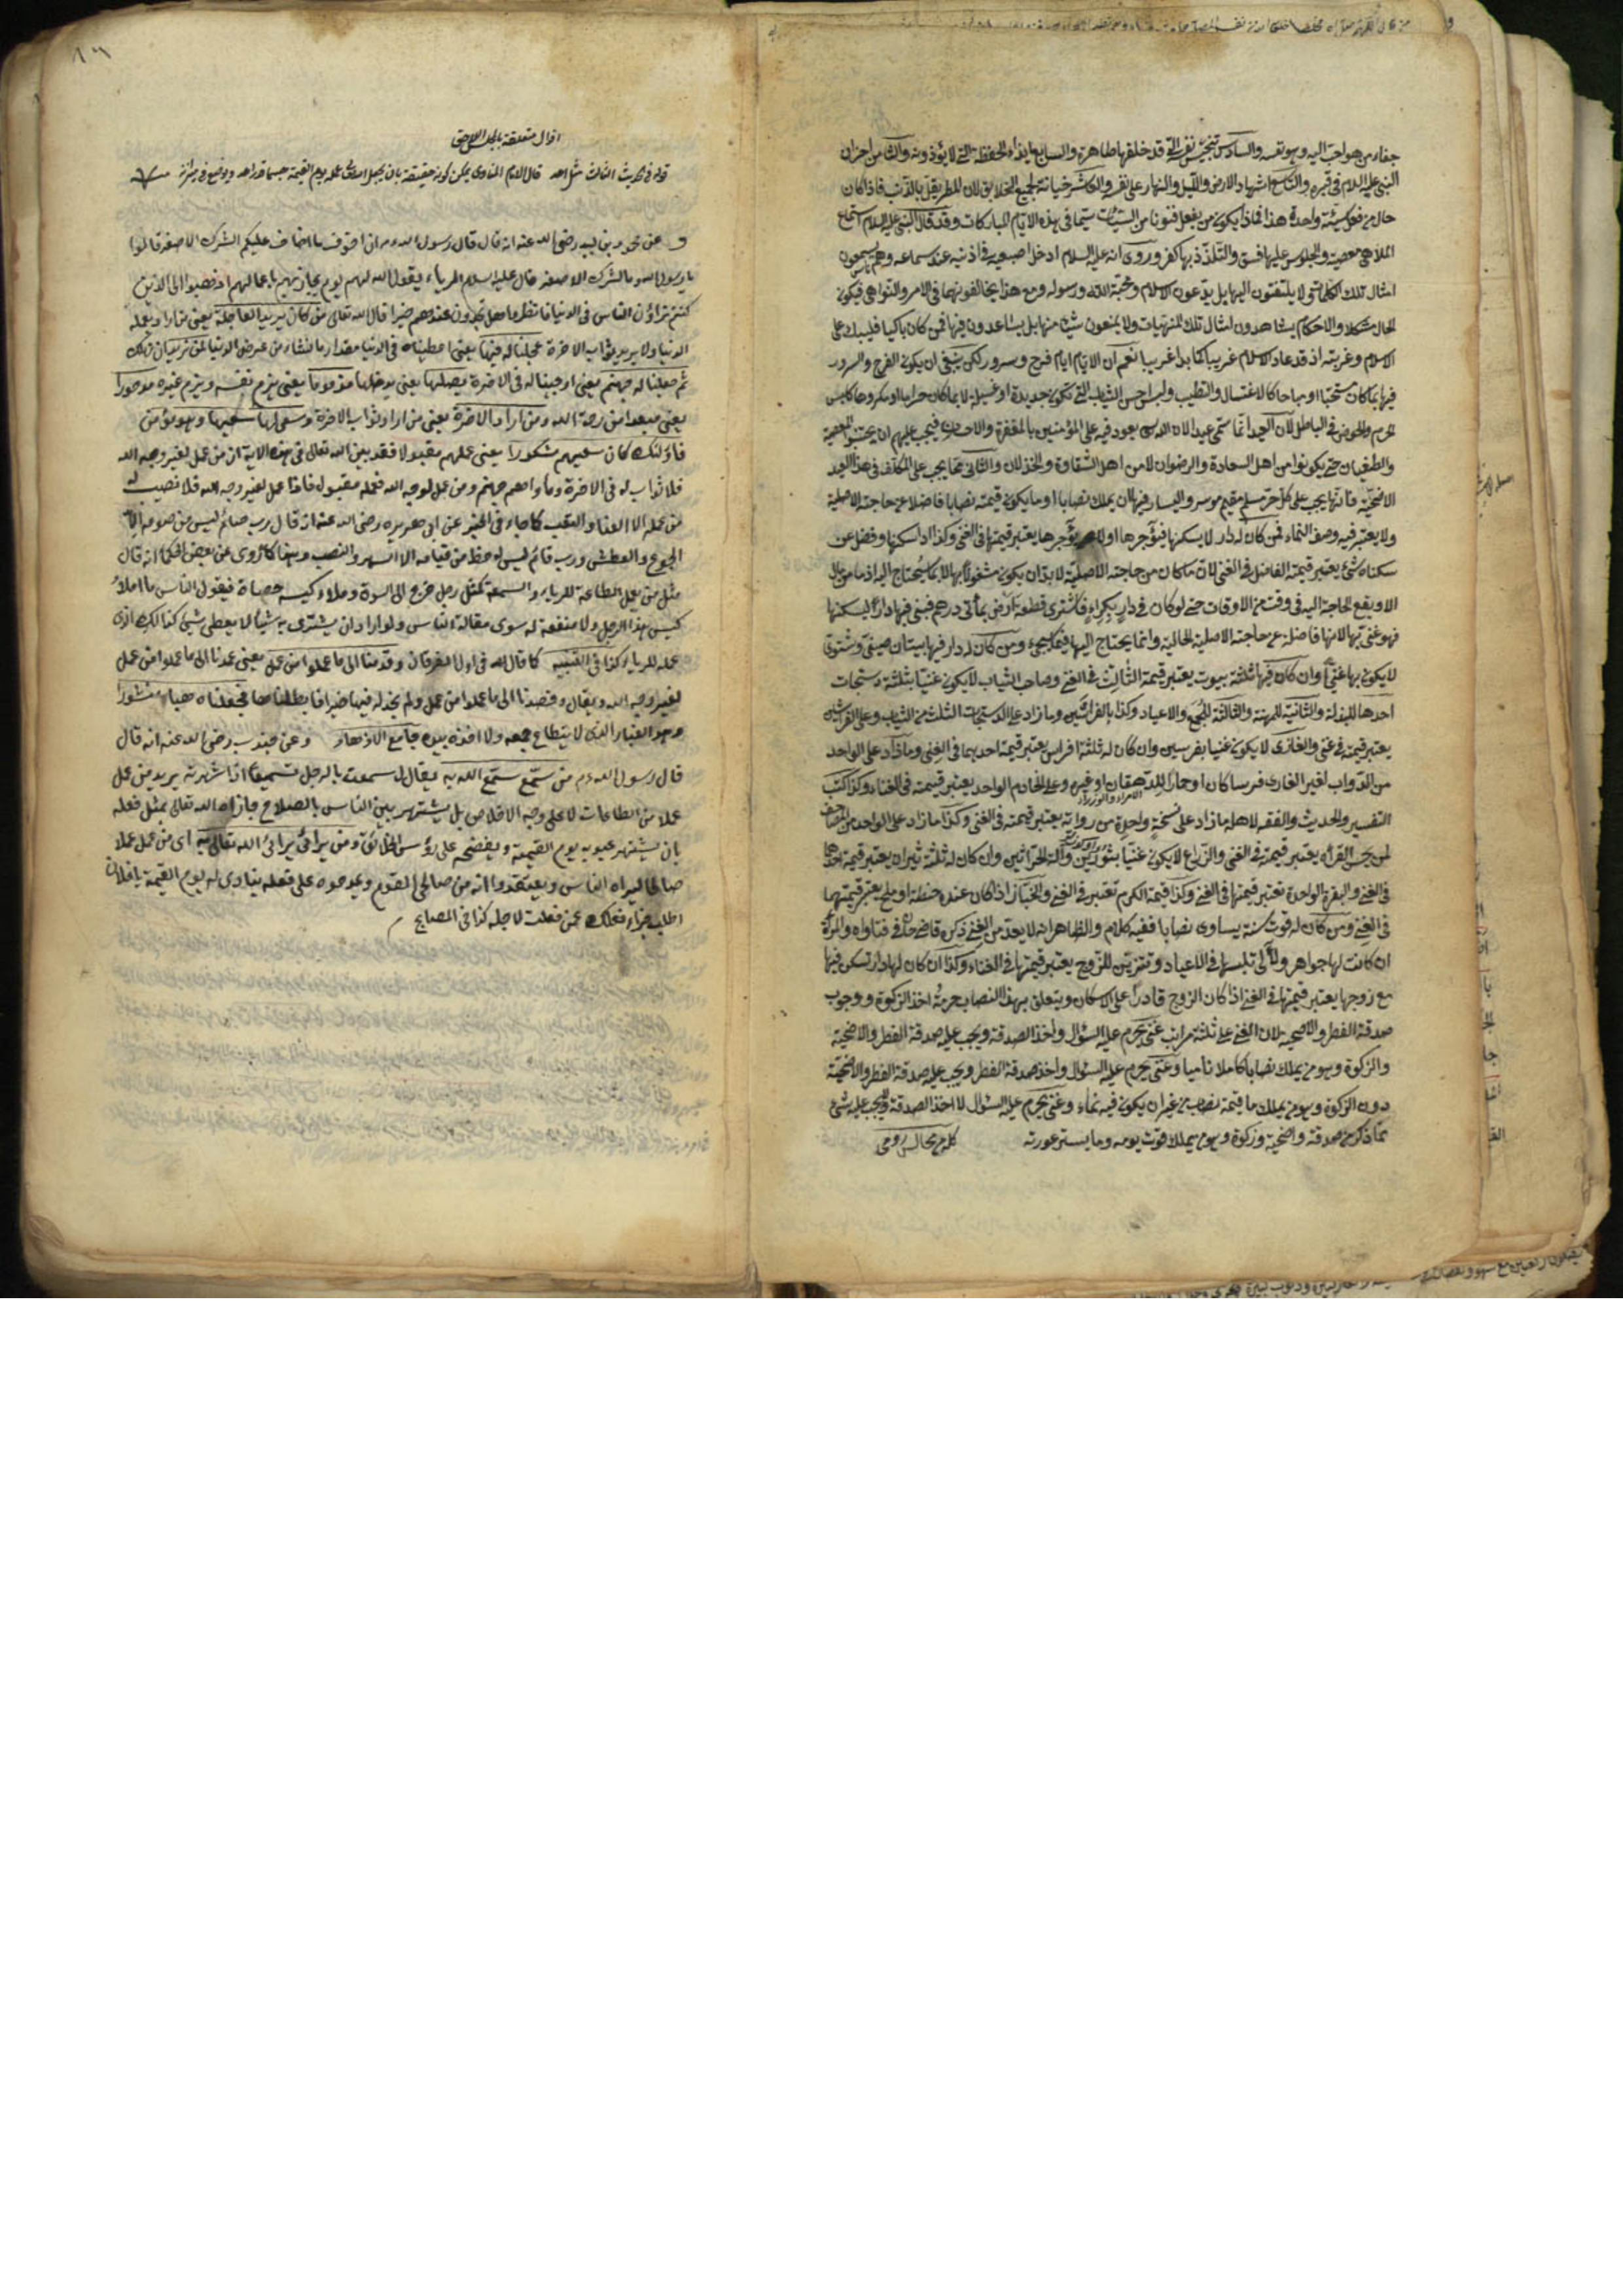 جفاء من هو احب اليه وهو نفسه والسادس تنجيس نفسه التي قد خلقها طاهرة والسابع ايذاء الحفظة التي لا يؤذونه والثامن احزان
النبي عليه السلام في قبره والتاسع اشهاد الارض والليل والنهار على نفسه والعاشر خيانة لجميع الخلايق لان للطريق بالذنب فاذا كان
حال من فعل سيئة واحدة هذا فماذا يكون من يفعل فنونا من السيئات سيما في هذه الايام المباركات وقد قال النبي عليه السلام استماع
الملاهي معصية والجلوس عليها فسق والتلذذ بها كفر وروى انه عليه السلام ادخل اصبعيه في اذنيه عند سماعه وهم يسمعون
امثال تلك الكلمات ولا يلتفتون اليها بل يدعون الاسلام ومحبة الله ورسوله ومع هذا يخالفونهما في الامر والنواهي فيكون
الحال مشكلا والاحكام يشاهدون امثال تلك المنهيات ولا يمنعون شيئا منها بل يساعدون فيها فمن كان باكيا فليبك على
الاسلام وغربته اذ قد عاد الاسلام غريبا كما بدا غريبا نعم ان الايام ايام فرح وسرور لكن ينبغي ان يكون الفرح والسرور
فيها بما كان مستحبا او مباحا كالاغتسال والتطيب ولبس احسن الثياب التي تكون جديدة او غسيلة لا بما كان حراما او مكروها كلبس
الحرير والخوض في الباطل لان العيد انما سمي عيدا لان الله يعود فيه على المؤمنين بالمغفرة والاحسان فيجب عليهم ان يجتنبوا المعصية
والطغيان حتى يكونوا من اهل السعادة والرضوان لا من اهل الشقاوة والخذلان والثاني مما يجب على المكلف في هذا العيد
الاضحية فانها يجب على كل حر مسلم مقيم موسر واليسار فيها ان يملك نصابا او ما يكون قيمته نصابا فاضلا عن حاجته الاصلية
ولا يعتبر فيه وصف النماء فمن كان له دار لا يسكنها فيؤجرها او لا يؤجرها يعتبر قيمتها في الغنى وكذا اذا سكنها وفضل عن
سكناه شئ يعتبر قيمة الفاضل في الغنى لان ما كان من حاجته الاصلية لا بد ان يكون مشغولا بها لا بما سيحتاج اليه اذ ما من مال
الا ويقع الحاجة اليه في وقت من الاوقات حتى لو كان في دار بكراء فاشترى قطعة ارض بمأتي درهم فبنى فيها دارا ليسكنها
فهو غني بها لانها فاضلة عن حاجته الاصلية الحالية وانما يحتاج اليها فيما يجيء ومن كان له دار فيها بيتان صيفي وشتوي
لا يكون بها غنيا وان كان فيها ثلثة بيوت يعتبر قيمة الثالث في الغنى وصاحب الثياب لا يكون غنيا بثلثة دستجات
احدها للبذلة والثانية للمهنة والثالثة للجمع والاعياد وكذا بالفراشين وما زاد على الدستجات الثلث من الثياب وعلى الفراشين
يعتبر قيمته في غنى والغازى لا يكون غنيا بفرسين وان كان له ثلثة افراس يعتبر قيمة احديهما في الغنى وما زاد على الواحد
من الدواب لغير الغازى فرسا كان او حمارا للدهقان او غيره وعلى الخادم الواحد يعتبر قيمته في الغناء وكذا كتب
التفسير والحديث والفقه لاهلها ما زاد على نسخة واحدة من رواية يعتبر قيمته في الغنى وكذا ما زاد على الواحد من المصاحف
لمن يحسن القرآن يعتبر قيمته في الغنى والزراع لا يكون غنيا بثورين وآلة الحراثين وان كان له ثلثة ثيران يعتبر قيمة احدها
في الغنى والبقرة الواحدة تعتبر قيمتها في الغنى وكذا قيمة الكرم تعتبر في الغنى والخباز اذا كان عنده حنطة او ملح يعتبر قيمتهما
في الغنى ومن كان له قوت سنة يساوى نصابا ففيه كلام والظاهر انه لا يعد من الغنى ذكره قاضى خان في فتاواه والمرأة
ان كانت لها جواهر ولآلى تلبسها في الاعياد وتتزين للزوج يعتبر قيمتها في الغناء وكذا ان كان لها دار تسكن فيها
مع زوجها يعتبر قيمتها في الغنى اذا كان الزوج قادرا على الاسكان ويتعلق بهذا النصاب حرمة اخذ الزكوة ووجوب
صدقة الفطر والاضحية لان الغنى على ثلثة مراتب غنى يحرم عليه السؤال واخذ الصدقة ويجب عليه صدقة الفطر والاضحية
والزكوة وهو من يملك نصابا كاملا ناميا وغنى يحرم عليه السؤال واخذ صدقة الفطر ويجب عليه صدقة الفطر والاضحية
دون الزكوة وهو من يملك ما قيمته نصاب من غير ان يكون فيه نماء وغنى يحرم عليه السؤال لا اخذ الصدقة ولا يجب عليه شئ
مما ذكر من صدقة واضحية وزكوة وهو من يملك قوت يومه وما يستر عورته كله من مجالس رومى
اقوال متعلقة بالمجلس
قوله في الحديث الثالث مثل احد قال الامام المناوى يمكن كونه حقيقة بان يجعل الله عمله يوم القيمة جسما قدر احد ويوضع في ميزانه
وعن محمود بن لبيد رضى الله عنه انه قال قال رسول الله ان اخوف ما اخاف عليكم الشرك الاصغر قالوا
يا رسول الله وما الشرك الاصغر قال عليه السلام الرياء يقول الله لهم يوم يجازيهم باعمالهم اذهبوا الى الذين
كنتم تراؤن الناس في الدنيا فانظروا هل تجدون عندهم خيرا قال الله تعالى من كان يريد العاجلة يعنى من اراد بعمله
الدنيا ولا يريد ثواب الاخرة عجلنا له فيها يعنى اعطيناه في الدنيا مقدار ما نشاء من عرض الدنيا لمن نريد
ثم جعلنا له جهنم يعنى اوجبنا له في الاخرة يصليها يعنى يدخلها مذموما يعنى يذم نفسه ويذم غيره مدحورا
يعنى مبعدا من رحمة الله ومن اراد الاخرة يعنى من اراد ثواب الاخرة وسعى لها سعيها وهو مؤمن
فاولئك كان سعيهم مشكورا يعنى عملهم مقبولا فقد بين الله تعالى في هذه الاية ان من عمل لغير وجه الله
فلا ثواب له في الاخرة ومأواهم جهنم ومن عمل لوجه الله فعمله مقبول فاذا عمل لغير وجه الله فلا نصيب له
من عمله الا العناء والتعب كما جاء في الخبر عن ابى هريره رضى الله عنه انه قال رب صائم ليس من صومه الا
الجوع والعطش ورب قائم ليس له حظ من قيامه الا السهر والنصب كما روى عن بعض الحكماء انه قال
مثل من يعمل الطاعة للرياء والسمعة كمثل رجل خرج الى السوق وملاء كيسه حصاة فيقول الناس ما املأ
كيس هذا الرجل ولا منفعة له سوى مقالة الناس ولو اراد ان يشترى به شيئا لا يعطى شئ كذلك الذى
عمله للرياء كذا في التنبيه كما قال الله في اول الفرقان وقدمنا الى ما عملوا من عمل يعنى عمدنا الى ما عملوا من عمل
لغير وجه الله ويقال وقصدنا الى ما عملوا من عمل ولم نجد له فيها خيرا فابطلناها فجعلناه هباء منثورا
وهو الغبار الذى لا يستطاع جمعه ولا اخذه بيده جامع الازهار وعن جندب رضى الله عنه انه قال
قال رسول الله م من سمع سمع الله به يقال سمعت بالرجل تسميعا اذا شهرته يريد من عمل
عملا من الطاعات لا على وجه الاخلاص بل يشتهر بين الناس بالصلاح جازاه الله تعالى بمثل فعله
بان يشتهر عيوبه يوم القيمة ويفضحه على رؤس الخلائق ومن يرائى يرائى الله تعالى به اى من عمل عملا
صالحا ليراه الناس ويعتقدوا انه من صالحى القوم ويمدحوه على فعله ينادى له يوم القيمة يا فلان
اطلب جزاء فعلك عمن فعلت لاجله كذا في المصابيح